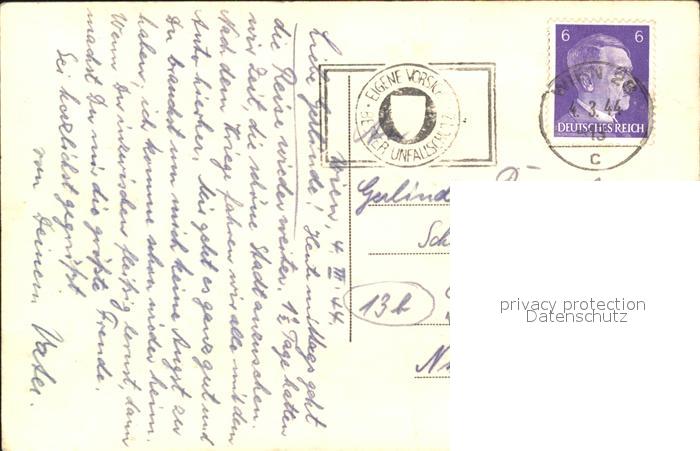 Wien, 4. III. 44.
Liebe Gerlinde! Heut mittags geht
die Reise wieder weiter. 1½ Tage hatten
wir Zeit, die schöne Stadt anzusehen.
Nach dem Kriege fahren wir alle mit dem
Auto hierher. Mir geht es ganz gut und
Du brauchst um mich keine Angst zu
haben, ich komme schon wieder heim.
Wenn Du inzwischen fleißig lernst, dann
machst Du mir die größte Freude.
Sei herzlichst gegrüßt
von Deinem Vater.
EIGENE VORSI
ER UNFALLSCHUTZ
6 6
DEUTSCHES REICH
WIEN
4.3.44
C
Gerlind
Sch
13b
privacy protection
Datenschutz